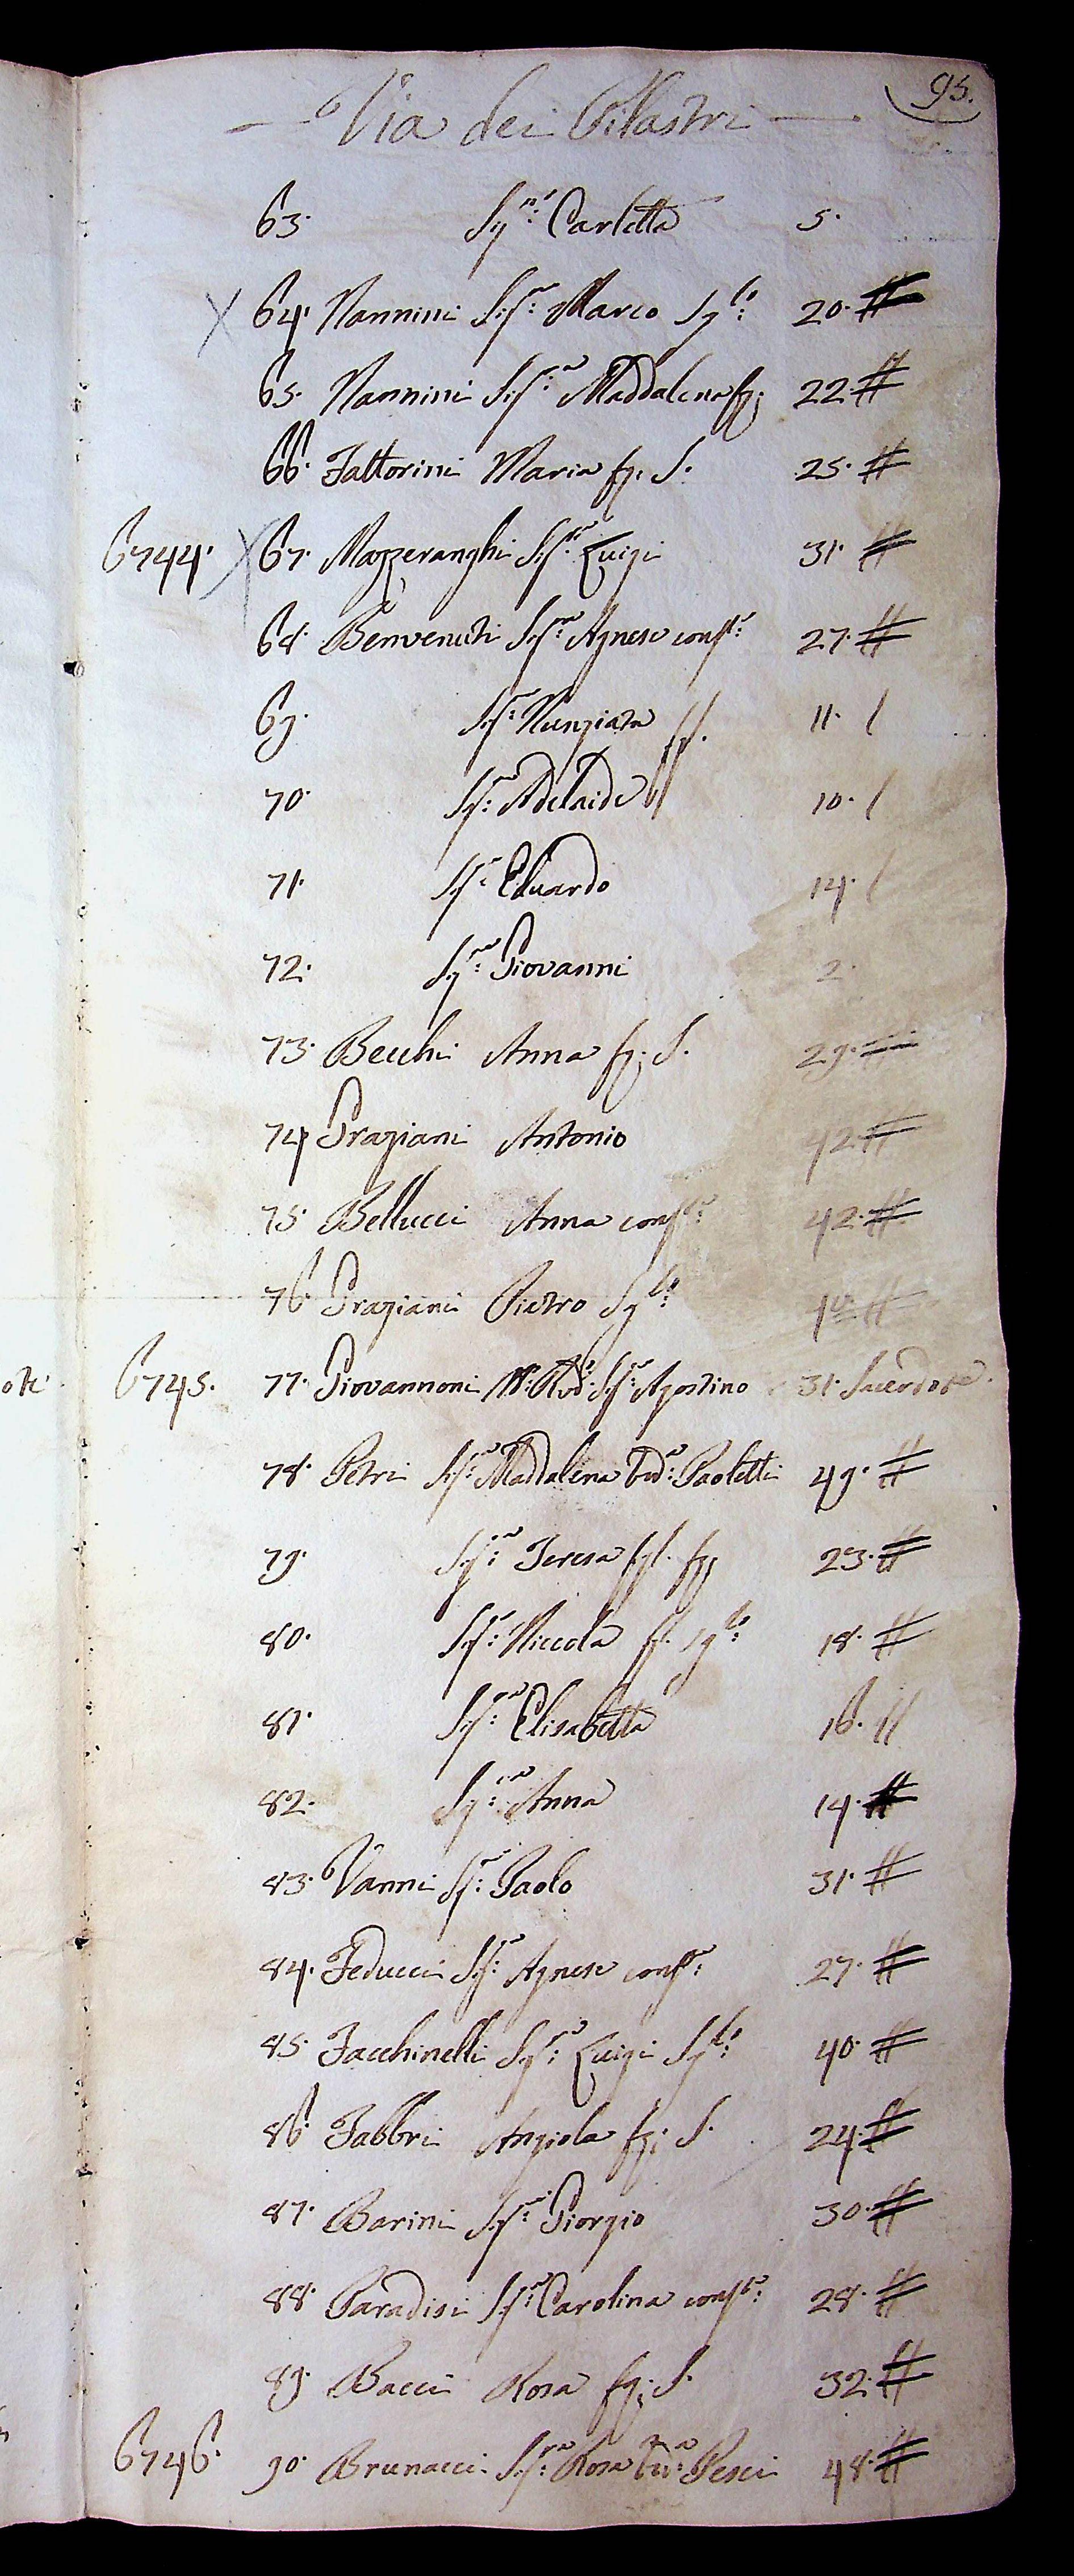 95.
Via dei Pilastri
63. Sig.ra Carletta 5.
64. Nannini Sig.r Marco Sg.lo 20. #
65. Nannini Sig.ra Maddalena fg. 22. #
66. Fattorini Maria fg. S. 25. #
6744. X 67. Mazzeranghi Sig.r Luigi 31. #
68. Benvenuti Sig.ra Agnese cons.te 27. #
69. Sig.ra Nunziata ff. 11. /
70. Sig.ra Adelaide 10. /
71. Sig.r Eduardo 14. /
72. Sig.r Giovanni 2.
73. Becchi Anna fg. S. 29. #
74. Graziani Antonio 42. #
75. Bellucci Anna cons.te 42. #
76. Graziani Pietro Sg.lo #
6745. 77. Giovannoni M. Rvd. Sig.r Agostino 31. Sacerdote.
78. Petri Sig.ra Maddalena Ved.a Paoletti 49. #
79. Sig.ra Teresa fgl. fg. 23. #
80. Sig.r Niccola ff. Sg.lo 18. #
81. Sig.ra Elisabetta 16. //
82. Sig.ra Anna 14. #
83. Vanni Sig.r Paolo 31. #
84. Feducci Sig.ra Agnese cons.te 27. #
85. Facchinelli Sig.r Luigi Sg.lo 40. #
86. Fabbri Angiola fg. S. 24. #
87. Barini Sig.r Giorgio 30. #
88. Paradisi Sig.ra Carolina cons.te 28. #
89. Bacci Rosa fg. S. 32. #
6746. 90. Brunacci Sig.ra Rosa Ved.a Pesci 48. #